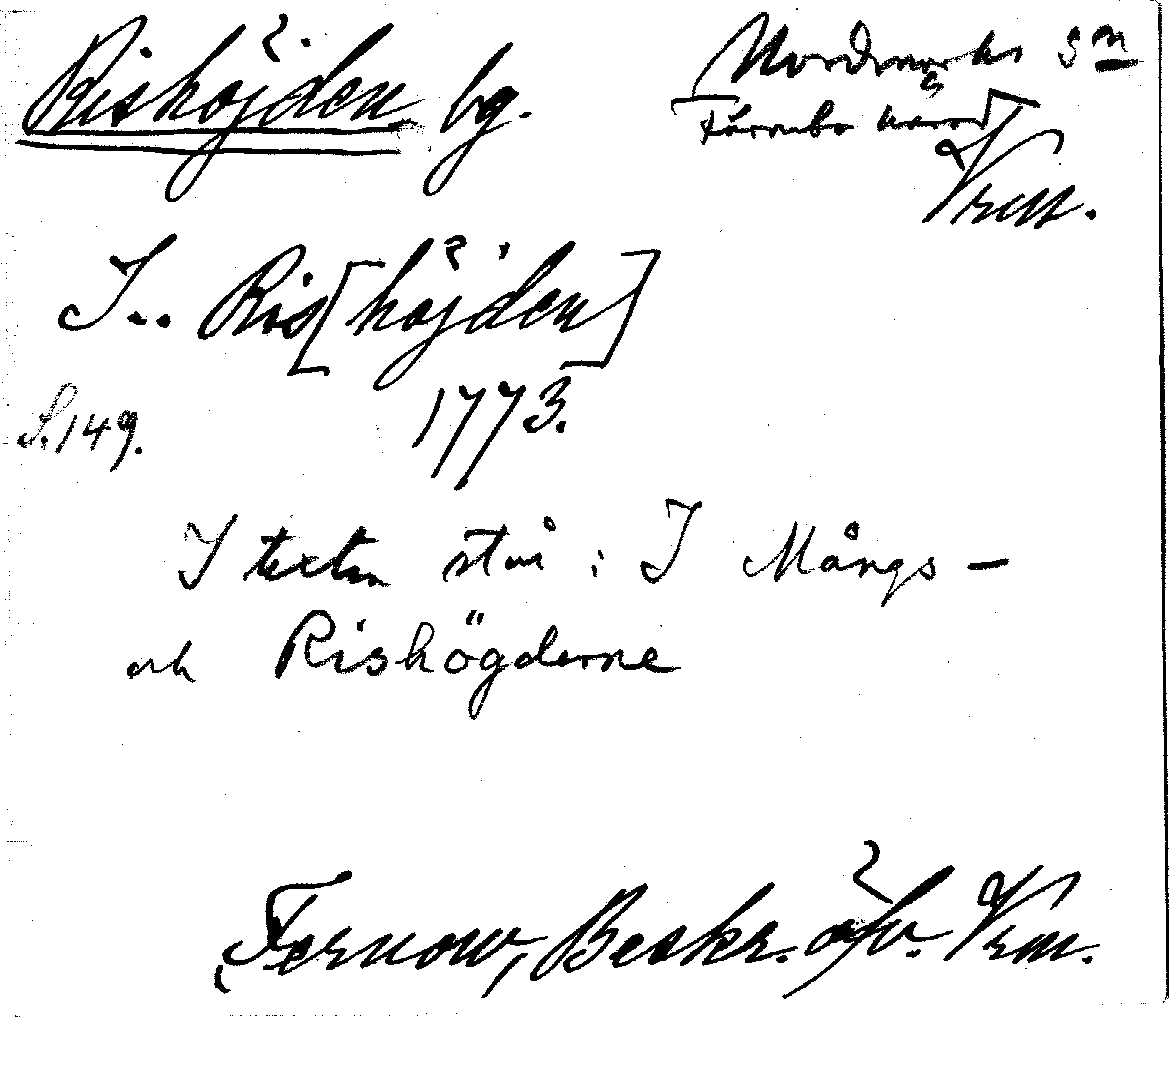 Rishöjden bg.
Nordmarks sn
Färnebo härad
Vrm.
I.. Ris[höjden]
S. 149.
1773.
I texten står: I Mångs-
och Rishögderne
Fernow, Beskr. öfv. Vrm.